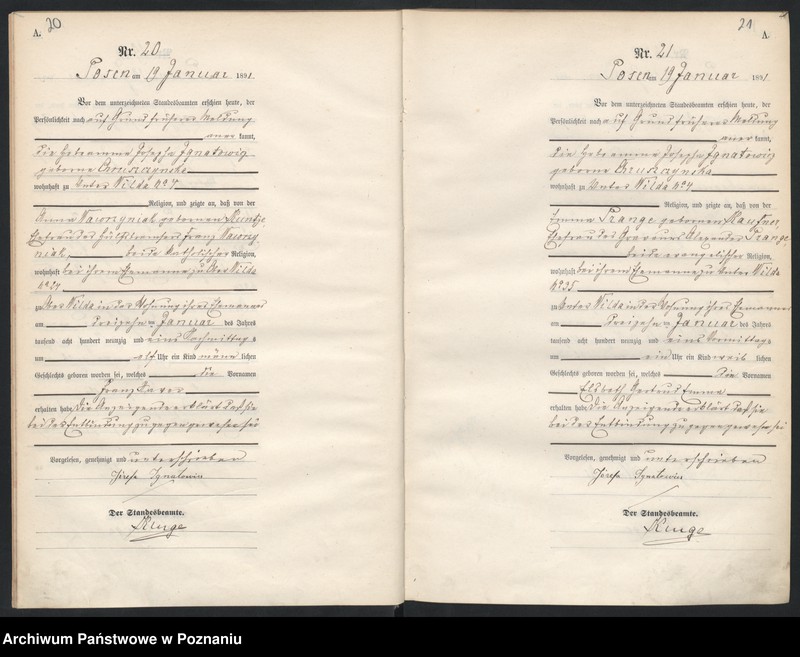 A. 20
Nr. 20
Posen am 19 Januar 1891.
Vor dem unterzeichneten Standesbeamten erschien heute, der
Persönlichkeit nach auf Grund früherer Meldung
aner kannt,
die Hebeamme Josepha Ignatowicz
geborne Gruszczynska
wohnhaft zu Unter Wilda No 4
Religion, und zeigte an, daß von der
Anna Wawrzyniak geborenen
Ehefrau des Franz Wawrzy-
niak, beide katholischer Religion,
wohnhaft bei ihrem Ehemanne zu Ober Wilda
No 24
zu Ober Wilda in der Wohnung ihres Ehemannes
am dreizehn ten Januar des Jahres
tausend acht hundert neunzig und eins Nachmittags
um elf Uhr ein Kind männ lichen
Geschlechts geboren worden sei, welches die Vornamen
Franz Xaver
erhalten habe. Die Anzeigende erklärt daß sie
bei der Entbindung zugegen gewesen sei
Vorgelesen, genehmigt und unterschrieben
Józefa Ignatowicz
Der Standesbeamte.
21 A.
Nr. 21
Posen am 19 Januar 1891
Vor dem unterzeichneten Standesbeamten erschien heute, der
Persönlichkeit nach auf Grund früherer Meldung
aner kannt,
die Hebeamme Josepha Ignatowicz
geborne Gruszczynska
wohnhaft zu Unter Wilda No 4
Religion, und zeigte an, daß von der
Emma Prange geborenen
Ehefrau des Alexander Prange
beide evangelischer Religion,
wohnhaft bei ihrem Ehemanne zu Unter Wilda
No 25
zu Unter Wilda in der Wohnung ihres Ehemannes
am dreizehn ten Januar des Jahres
tausend acht hundert neunzig und eins Vormittags
um ein Uhr ein Kind weib lichen
Geschlechts geboren worden sei, welches die Vornamen
Elsbeth Gertrud Emma
erhalten habe. Die Anzeigende erklärt daß sie
bei der Entbindung zugegen gewesen sei
Vorgelesen, genehmigt und unterschrieben
Józefa Ignatowicz
Der Standesbeamte.
Archiwum Państwowe w Poznaniu